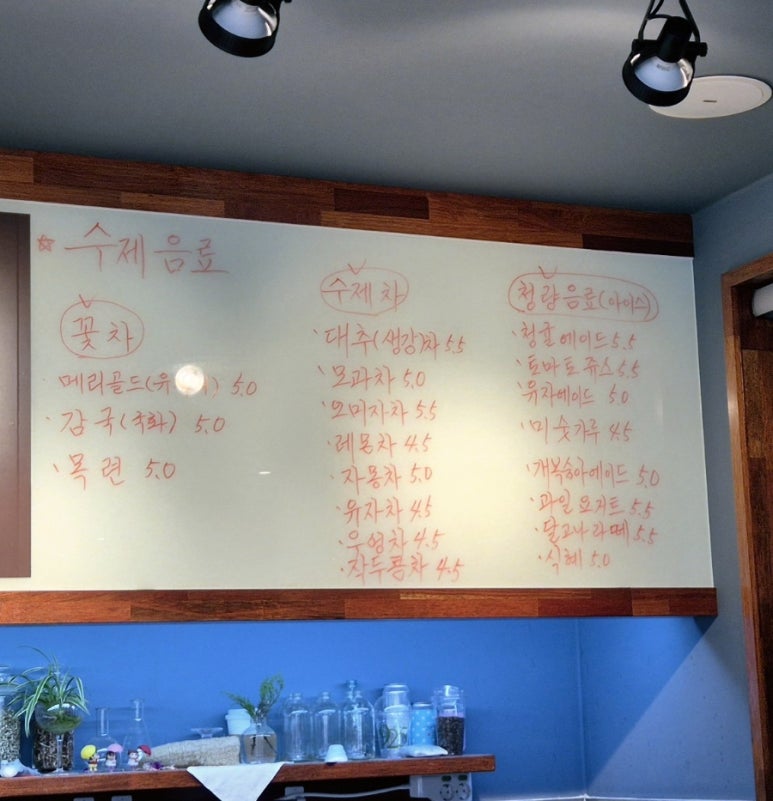 ☆ 수제음료
꽃차
· 메리골드( 5.0
· 감국(국화) 5.0
· 목련 5.0
수제차
· 대추(생강)차 5.5
· 모과차 5.0
· 오미자차 5.5
· 레몽차 4.5
· 자몽차 5.0
· 유자차 4.5
· 우엉차 4.5
· 작두콩차 4.5
청량음료(아이스)
· 청귤에이드 5.5
· 토마토쥬스 5.5
· 유자에이드 5.0
· 미숫가루 4.5
· 개복숭아에이드 5.0
· 과일요거트 5.5
· 달고나라떼 5.5
· 식혜 5.0